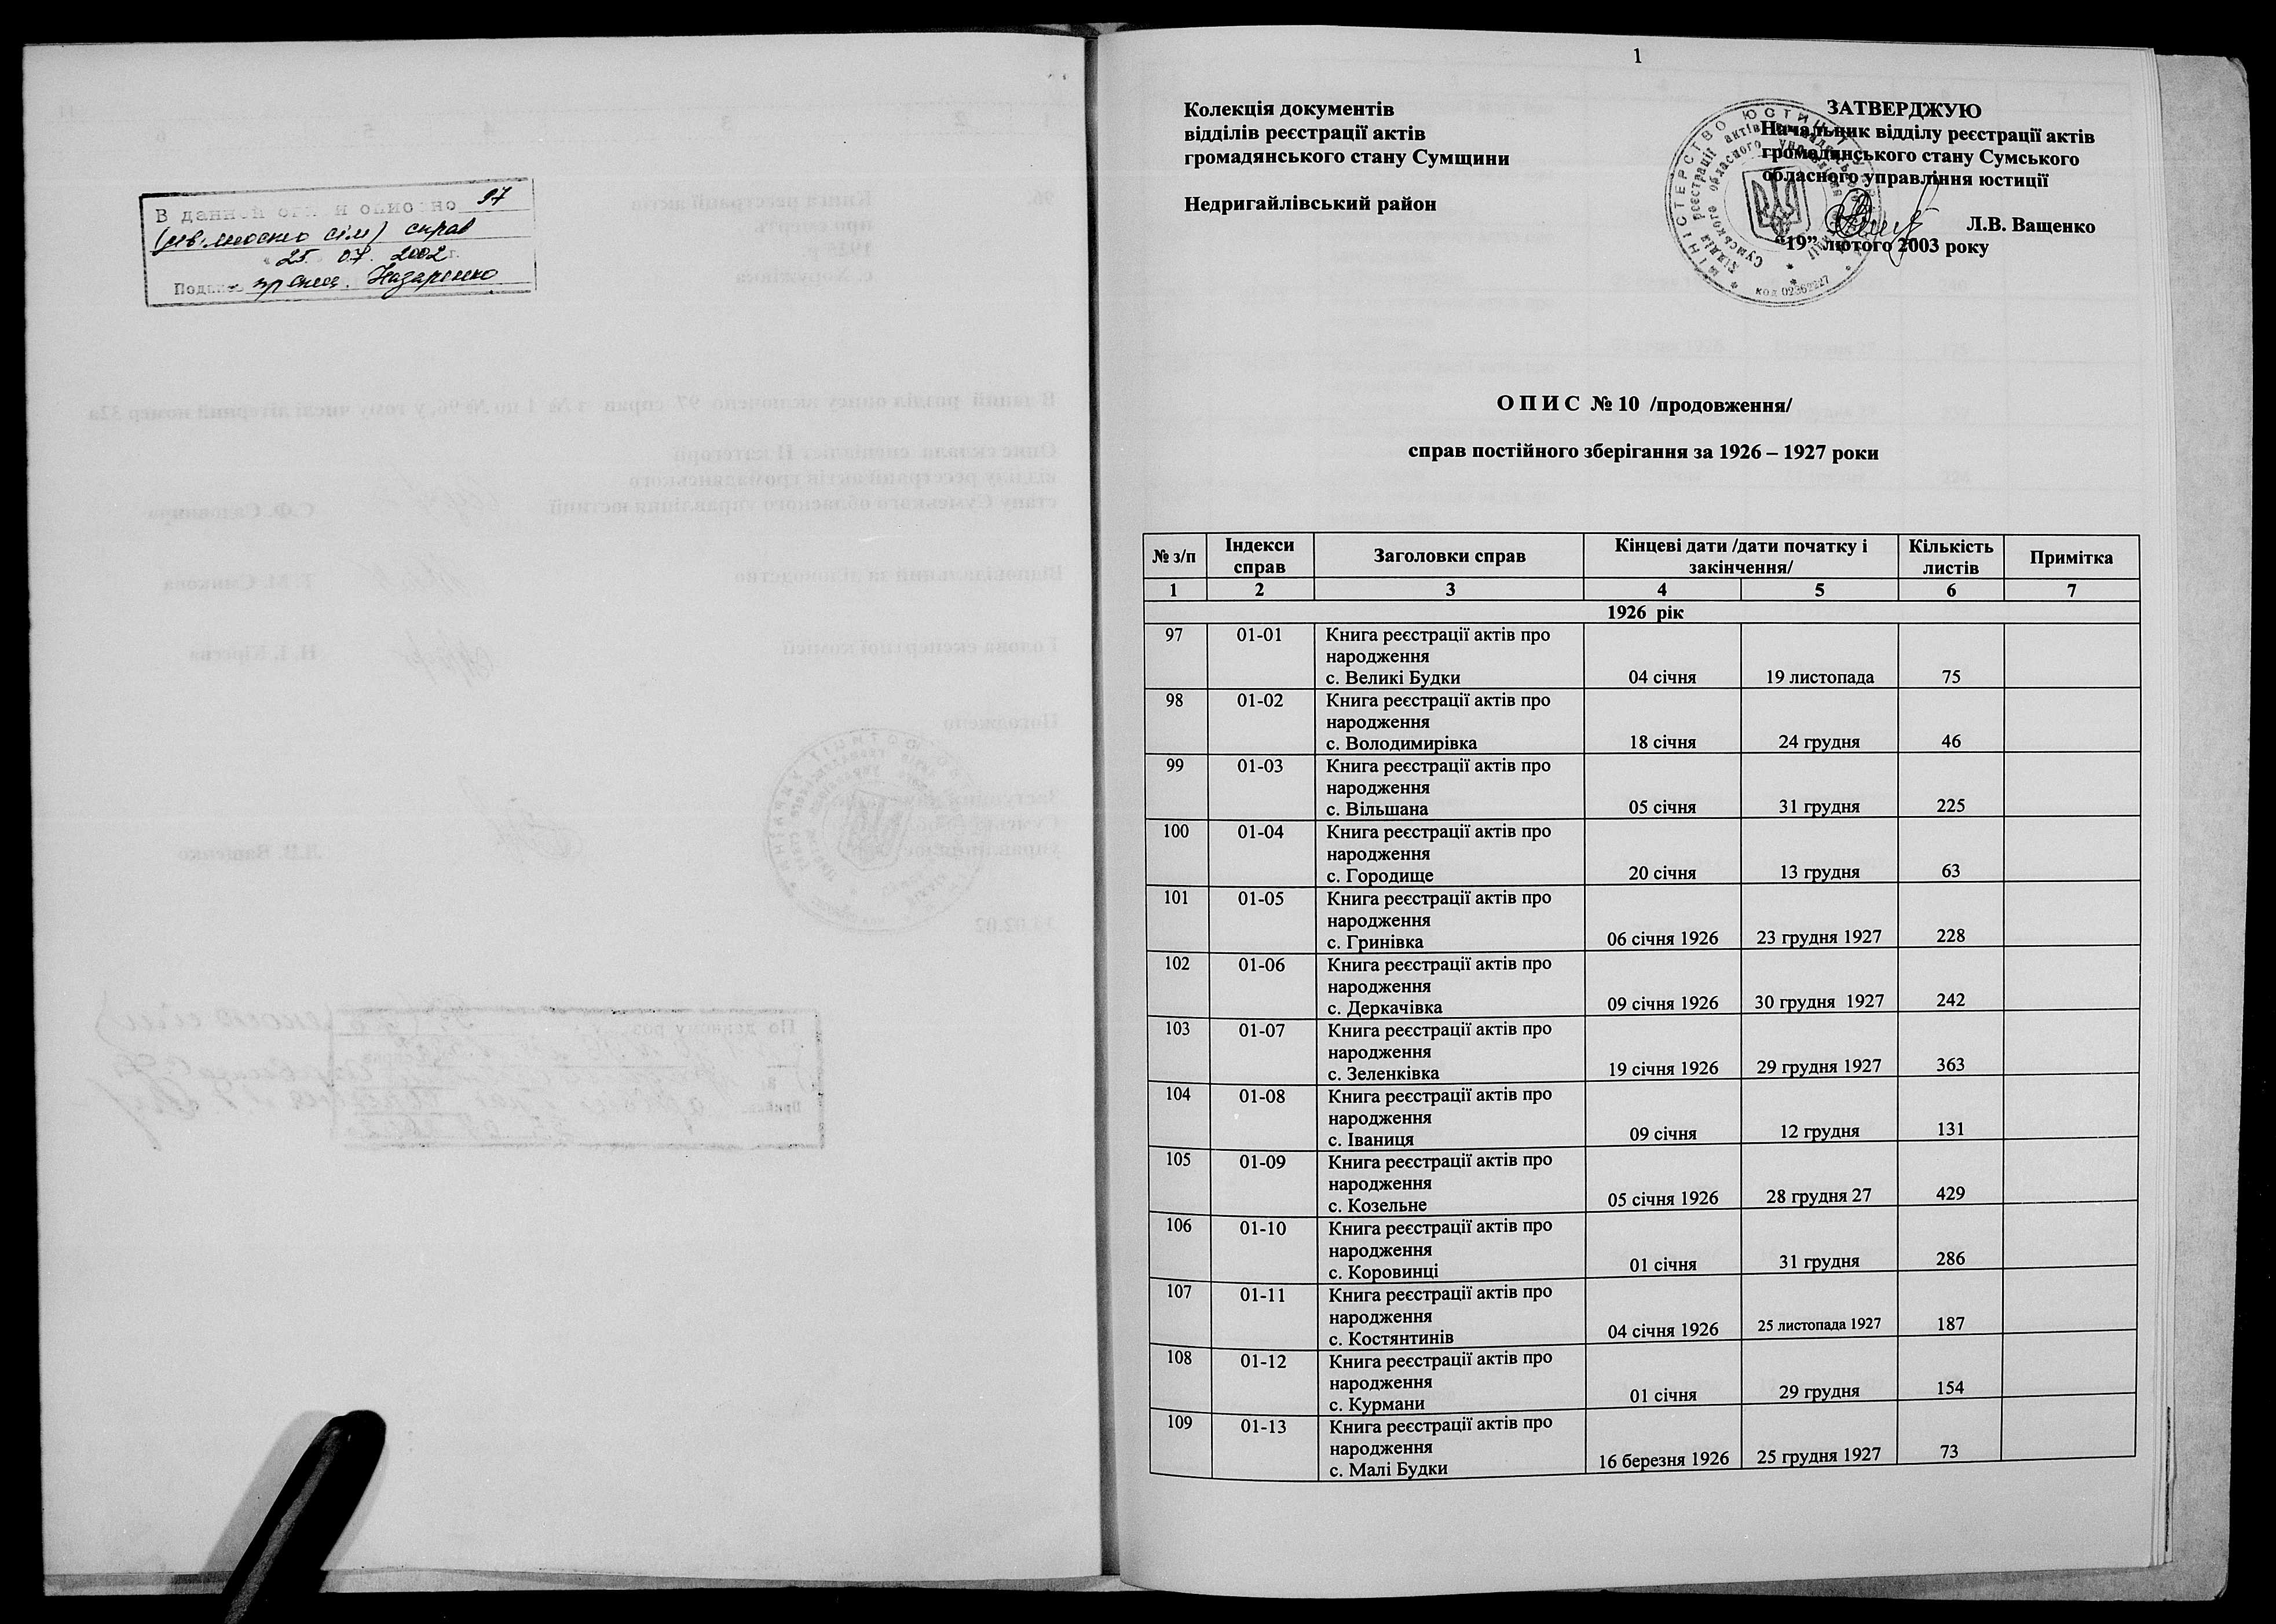 В данной описи описано 97
(дев'яносто сім) справ
25. 07. 2002 г.
Подпись Назаренко
1
Колекція документів
відділів реєстрації актів
громадянського стану Сумщини
Недригайлівський район
ЗАТВЕРДЖУЮ
Начальник відділу реєстрації актів
громадянського стану Сумського
обласного управління юстиції
Л.В. Ващенко
“19” лютого 2003 року
код 02362227
О П И С № 10 /продовження/
справ постійного зберігання за 1926 – 1927 роки
№ з/п Індекси справ Заголовки справ Кінцеві дати /дати початку і закінчення/ Кількість листів Примітка
1 2 3 4 5 6 7
1926 рік
97 01-01 Книга реєстрації актів про
народження
с. Великі Будки 04 січня 19 листопада 75
98 01-02 Книга реєстрації актів про
народження
с. Володимирівка 18 січня 24 грудня 46
99 01-03 Книга реєстрації актів про
народження
с. Вільшана 05 січня 31 грудня 225
100 01-04 Книга реєстрації актів про
народження
с. Городище 20 січня 13 грудня 63
101 01-05 Книга реєстрації актів про
народження
с. Гринівка 06 січня 1926 23 грудня 1927 228
102 01-06 Книга реєстрації актів про
народження
с. Деркачівка 09 січня 1926 30 грудня 1927 242
103 01-07 Книга реєстрації актів про
народження
с. Зеленківка 19 січня 1926 29 грудня 1927 363
104 01-08 Книга реєстрації актів про
народження
с. Іваниця 09 січня 12 грудня 131
105 01-09 Книга реєстрації актів про
народження
с. Козельне 05 січня 1926 28 грудня 27 429
106 01-10 Книга реєстрації актів про
народження
с. Коровинці 01 січня 31 грудня 286
107 01-11 Книга реєстрації актів про
народження
с. Костянтинів 04 січня 1926 25 листопада 1927 187
108 01-12 Книга реєстрації актів про
народження
с. Курмани 01 січня 29 грудня 154
109 01-13 Книга реєстрації актів про
народження
с. Малі Будки 16 березня 1926 25 грудня 1927 73